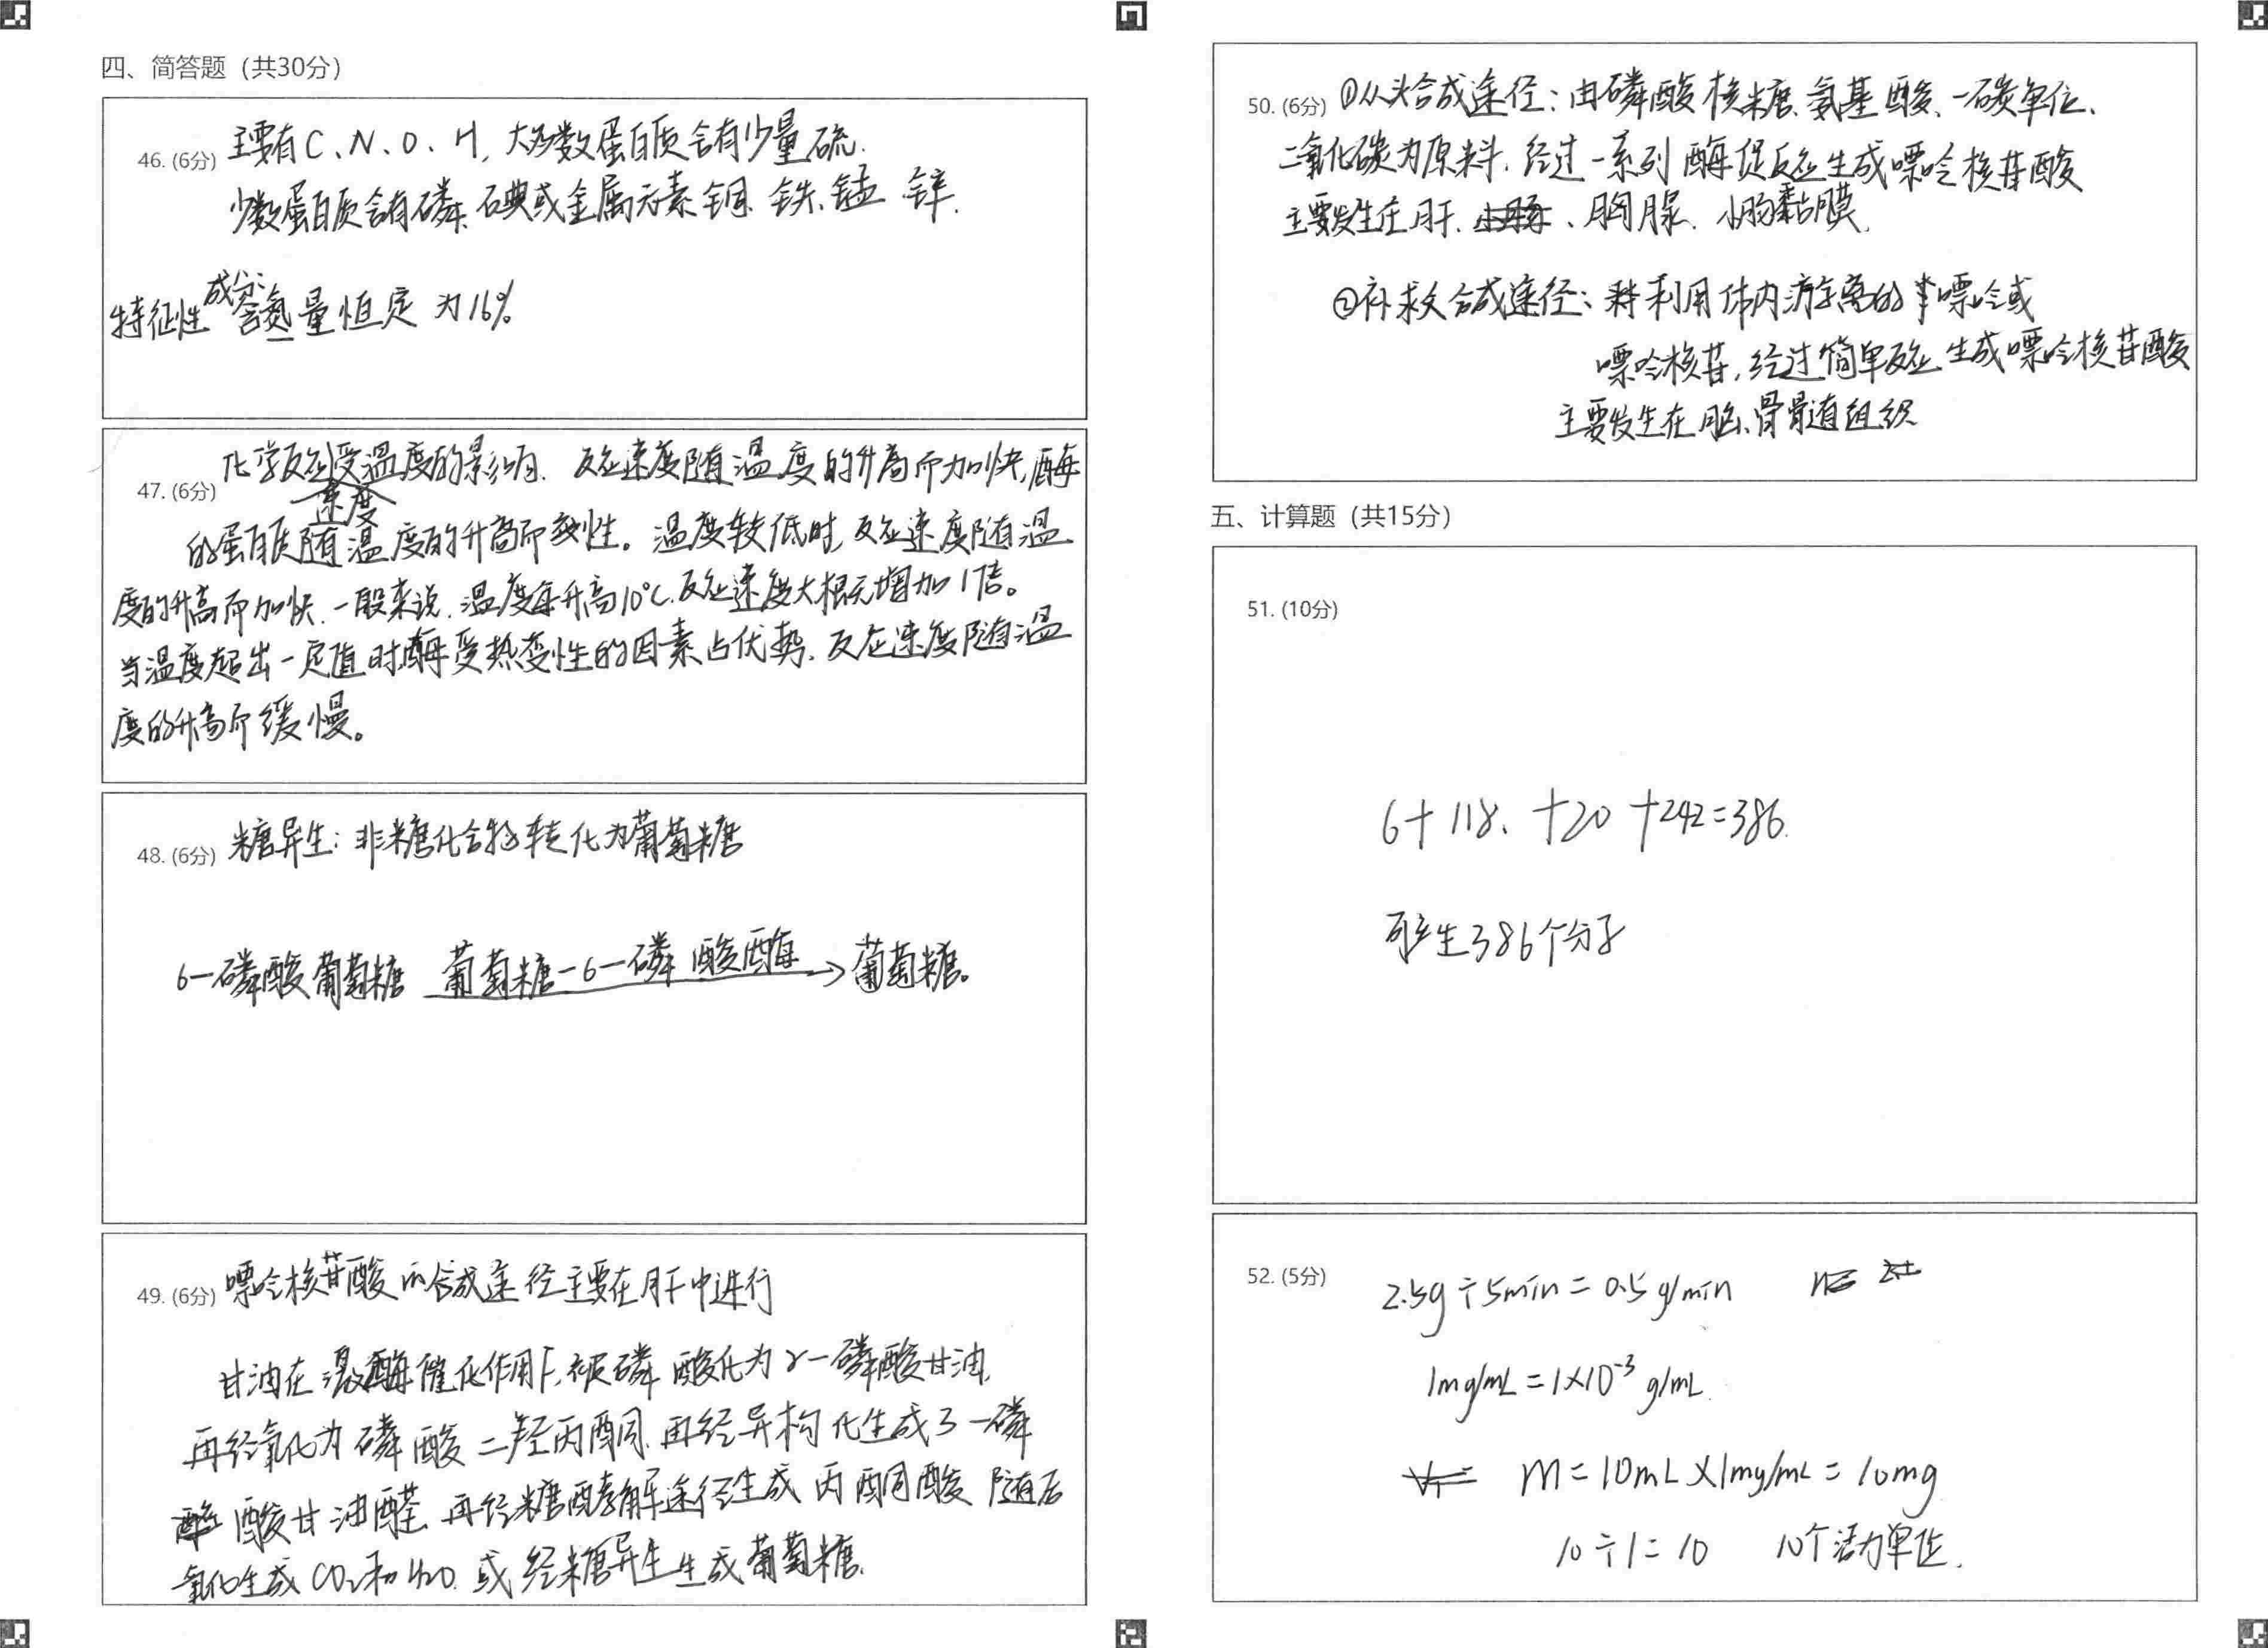 四、简答题（共30分）
46. (6分) 主要有C、N、O、H，大多数蛋白质含有少量硫.
少数蛋白质含有磷、碘或金属元素铜、铁、锰、锌.
成分：
特征性 含氮量恒定为16%
47. (6分) 化学反应受温度的影响. 反应速度随温度的升高而加快,酶
速度
的蛋白质随温度的升高而变性。温度较低时,反应速度随温
度的升高而加快.一般来说.温度每升高10℃.反应速度大概增加1倍。
当温度超出一定值时酶受热变性的因素占优势.反应速度随温
度的升高而缓慢。
48. (6分) 糖异生：非糖化合物转化为葡萄糖
6-磷酸葡萄糖 葡萄糖-6-磷酸酶→葡萄糖。
49. (6分) 嘌呤核苷酸的合成途径主要在肝中进行
甘油在激酶催化作用下,被磷酸化为α-磷酸甘油
再经氧化为磷酸二羟丙酮.再经异构化生成3-磷
酸甘油醛.再经糖酵解途径生成丙酮酸 随后
氧化生成CO₂和H₂O.或经糖异生生成葡萄糖.
50. (6分) ①从头合成途径：由磷酸核糖、氨基酸、一碳单位、
二氧化碳为原料.经过一系列酶促反应生成嘌呤核苷酸
主要发生在肝、、胸腺、小肠黏膜.
②补救合成途径：利用体内游离的嘌呤或
嘌呤核苷,经过简单反应生成嘌呤核苷酸
主要发生在脑、骨髓组织
五、计算题（共15分）
51. (10分)
6+118.+20+242=386.
可产生386个分子
52. (5分) 2.5g÷5min=0.5g/min
1mg/mL=1×10⁻³g/mL.
m=10mL×1mg/mL=10mg
10÷1=10 10个活力单位.